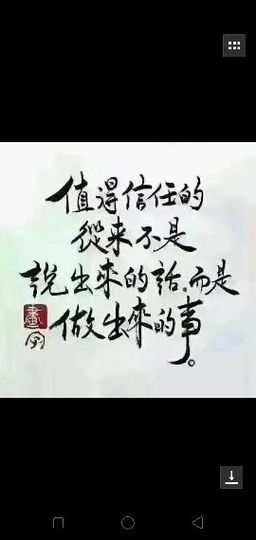 值得信任的
從来不是
説出來的話.而是
做出來的事。